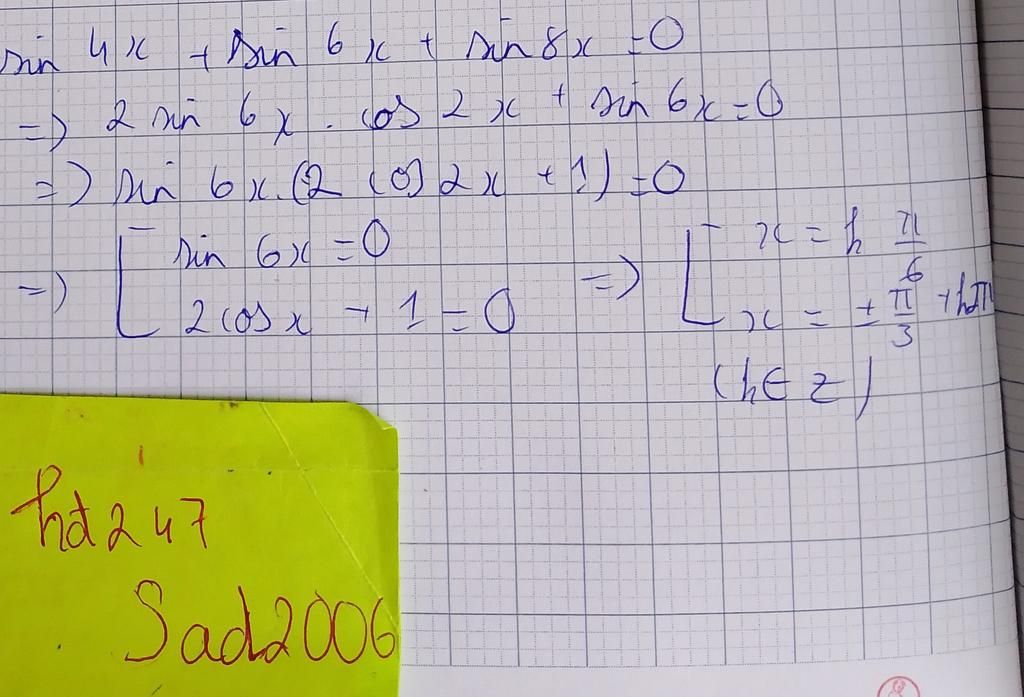 sin 4x + sin 6x + sin 8x = 0
=> 2 sin 6x . cos 2x + sin 6x = 0
=> sin 6x.(2 cos 2x + 1) = 0
=> [ sin 6x = 0 => [ x = k π/6
2cosx + 1 = 0 x = ± π/3 + kπ
(k ∈ z)
hđ247
Sad2006